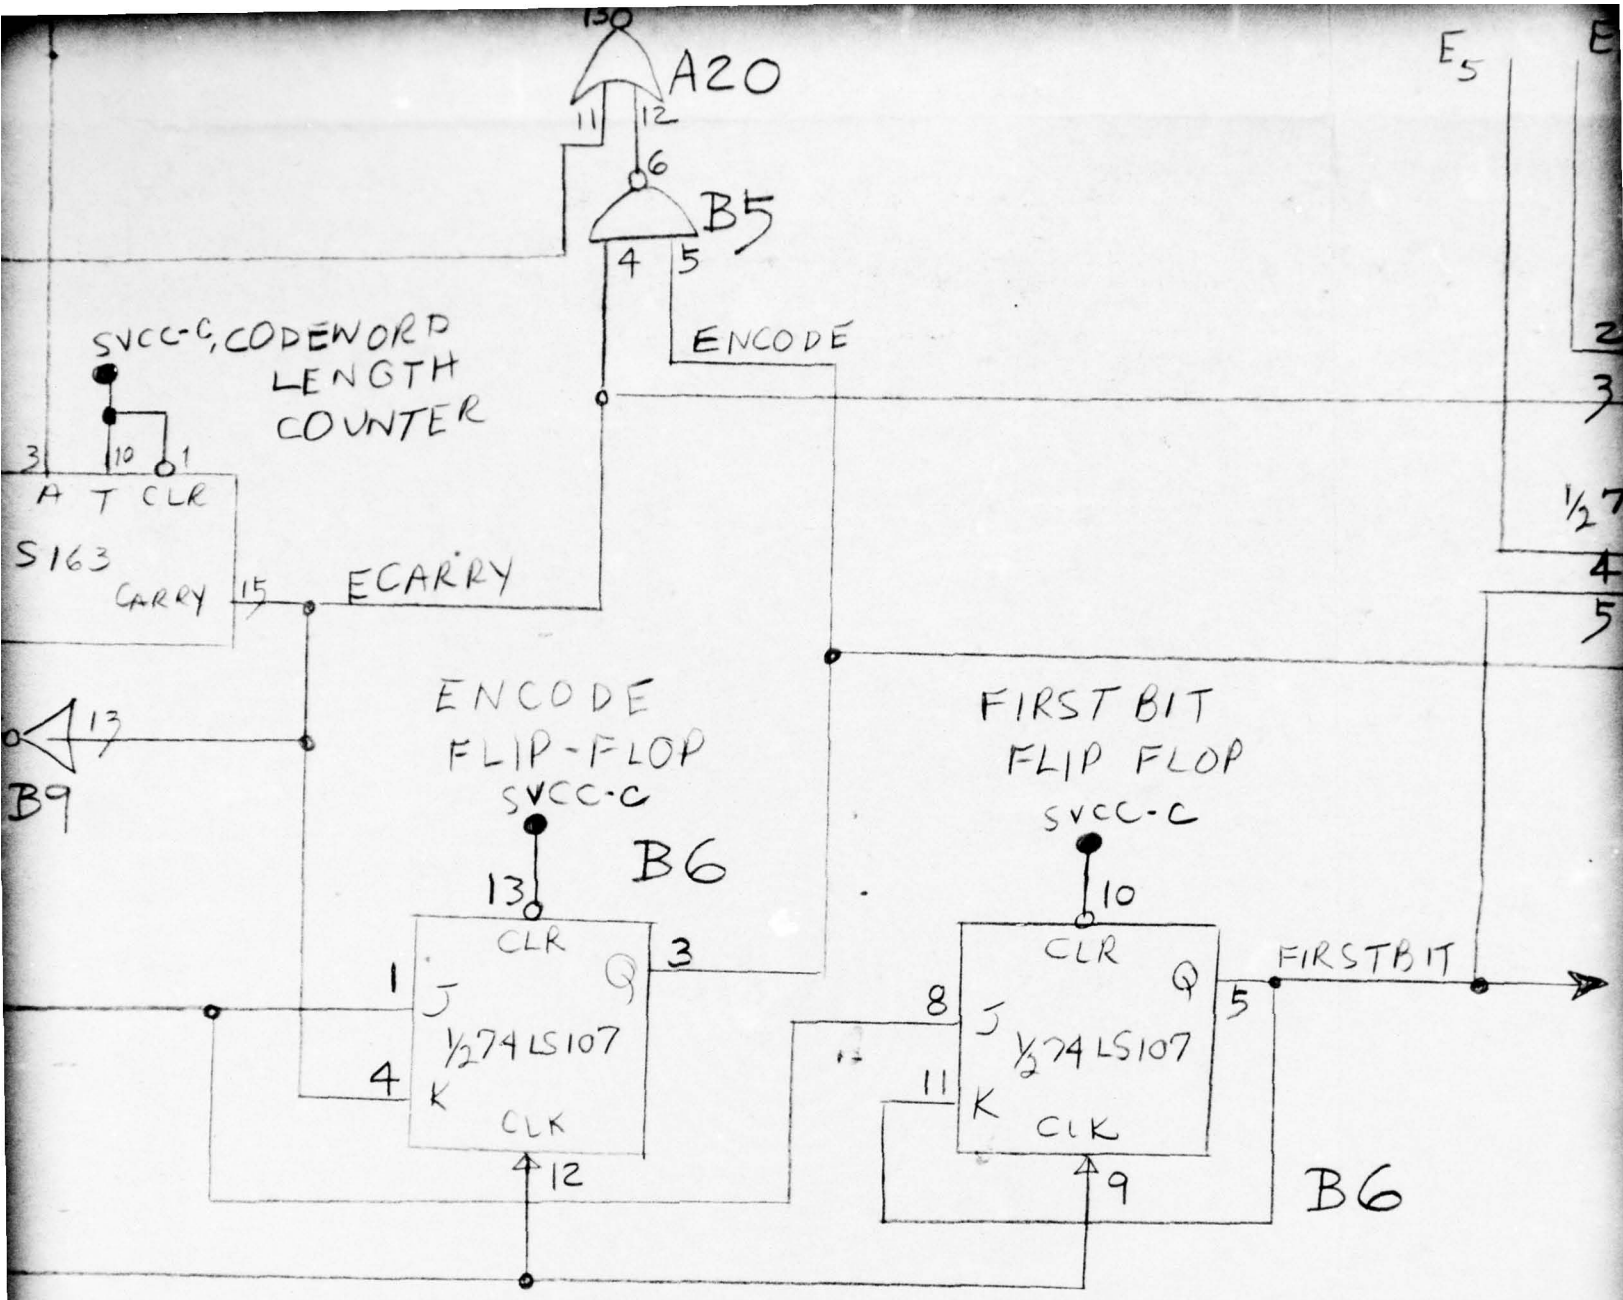 130
A20
11 12
6
B5
4 5
E5 E
ENCODE
SVCC-C, CODEWORD
LENGTH
COUNTER
2
3
3 10 1
A T CLR
S163
CARRY 15
ECARRY
1/2 7
4
5
13
B9
ENCODE
FLIP-FLOP
SVCC-C
B6
13
CLR
1 J
Q 3
1/2 74LS107
4 K
CLK
12
FIRST BIT
FLIP FLOP
SVCC-C
10
CLR
8 J
Q 5
FIRSTBIT
1/2 74LS107
11 K
CLK
9
B6